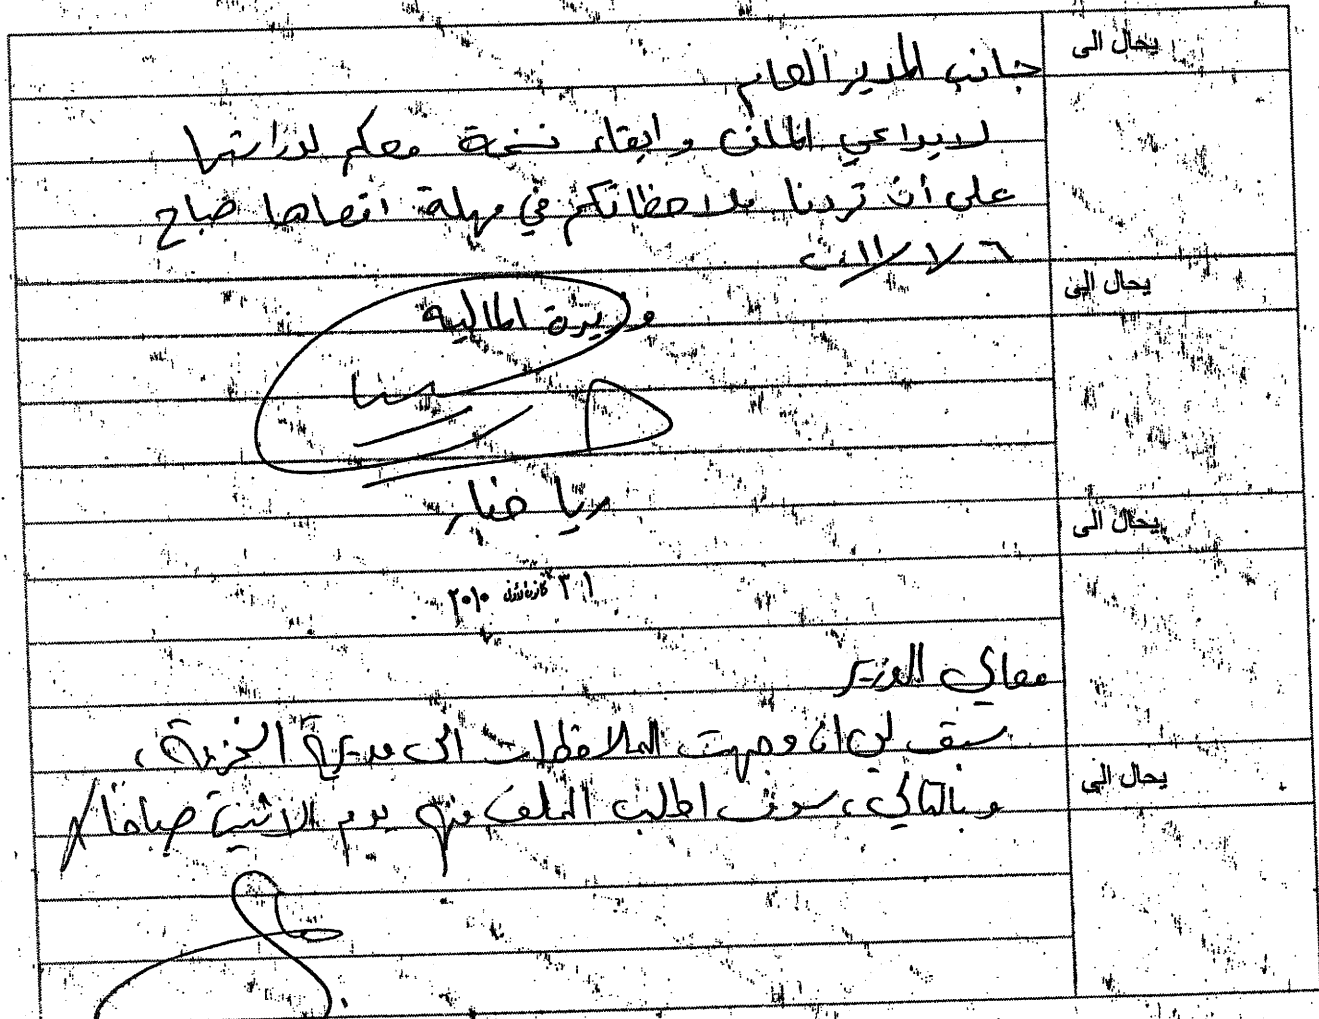 يحال الى
جانب المدير العام
لايداعي الملف وابقاء نسخة معكم لدراستها
على أن تردنا ملاحظاتكم في مهلة اقصاها صباح
٦/١/٢٠١١
يحال الى
وزيرة المالية
ريا حفار
يحال الى
٣١ كانون الاول ٢٠١٠
معالي الوزير
سبق لي ان وجهت الملاحظات الى مديرية الخزينة،
يحال الى
وبالتالي، سوف اطلب الملف منه يوم الاثنين صباحاً